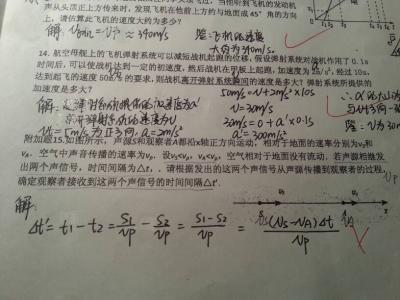 声从头顶正上方传来时,发现飞机在他前上方约与地面成45°角的方向
上,请估算此飞机的速度大约为多少?
14. 航空母舰上的飞机弹射系统可以减短战机起跑的位移,假设弹射系统对战机作用了0.1s
时间后,可以使战机达到一定的初速度,然后战机在甲板上起跑,加速度为2m/s²,经过10s,
达到起飞的速度50m/s的要求,则战机离开弹射系统瞬间的速度是多大?弹射系统所提供的
加速度是多少?
解:
50m/s=v+2m/s²×10s
v=30m/s
30m/s=0+a'×0.1s
a'=300m/s²
附加题15.如图所示,声源S和观察者A都沿x轴正方向运动,相对于地面的速率分别为vS和
vA. 空气中声音传播的速率为vP. 设vS<vP, vA<vP, 空气相对于地面没有流动. 若声源相继发
出两个声信号,时间间隔为Δt,.请根据发出的这两个声信号从声源传播到观察者的过程,
确定观察者接收到这两个声信号的时间间隔Δt'.
解:
Δt'=t1-t2=S1/vP-S2/vP=(S1-S2)/vP=(vS-vA)Δt/vP